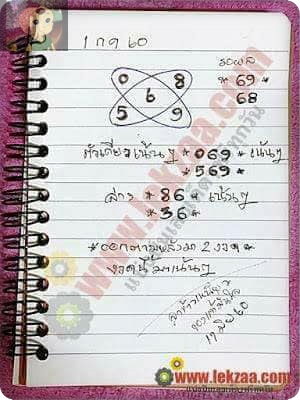 1 กค 60
รอผล
0 8
*69*
6
68
5 9
ตัวเดียวเน้นๆ *069* เน้นๆ
*569*
ล่าง *86* เน้นๆ
*36*
*ออกตามหลังมา 2 งวด*
งวดนี้มาเน้นๆ
17 มิย 60
www.lekzaa.com
www.lekzaa.com